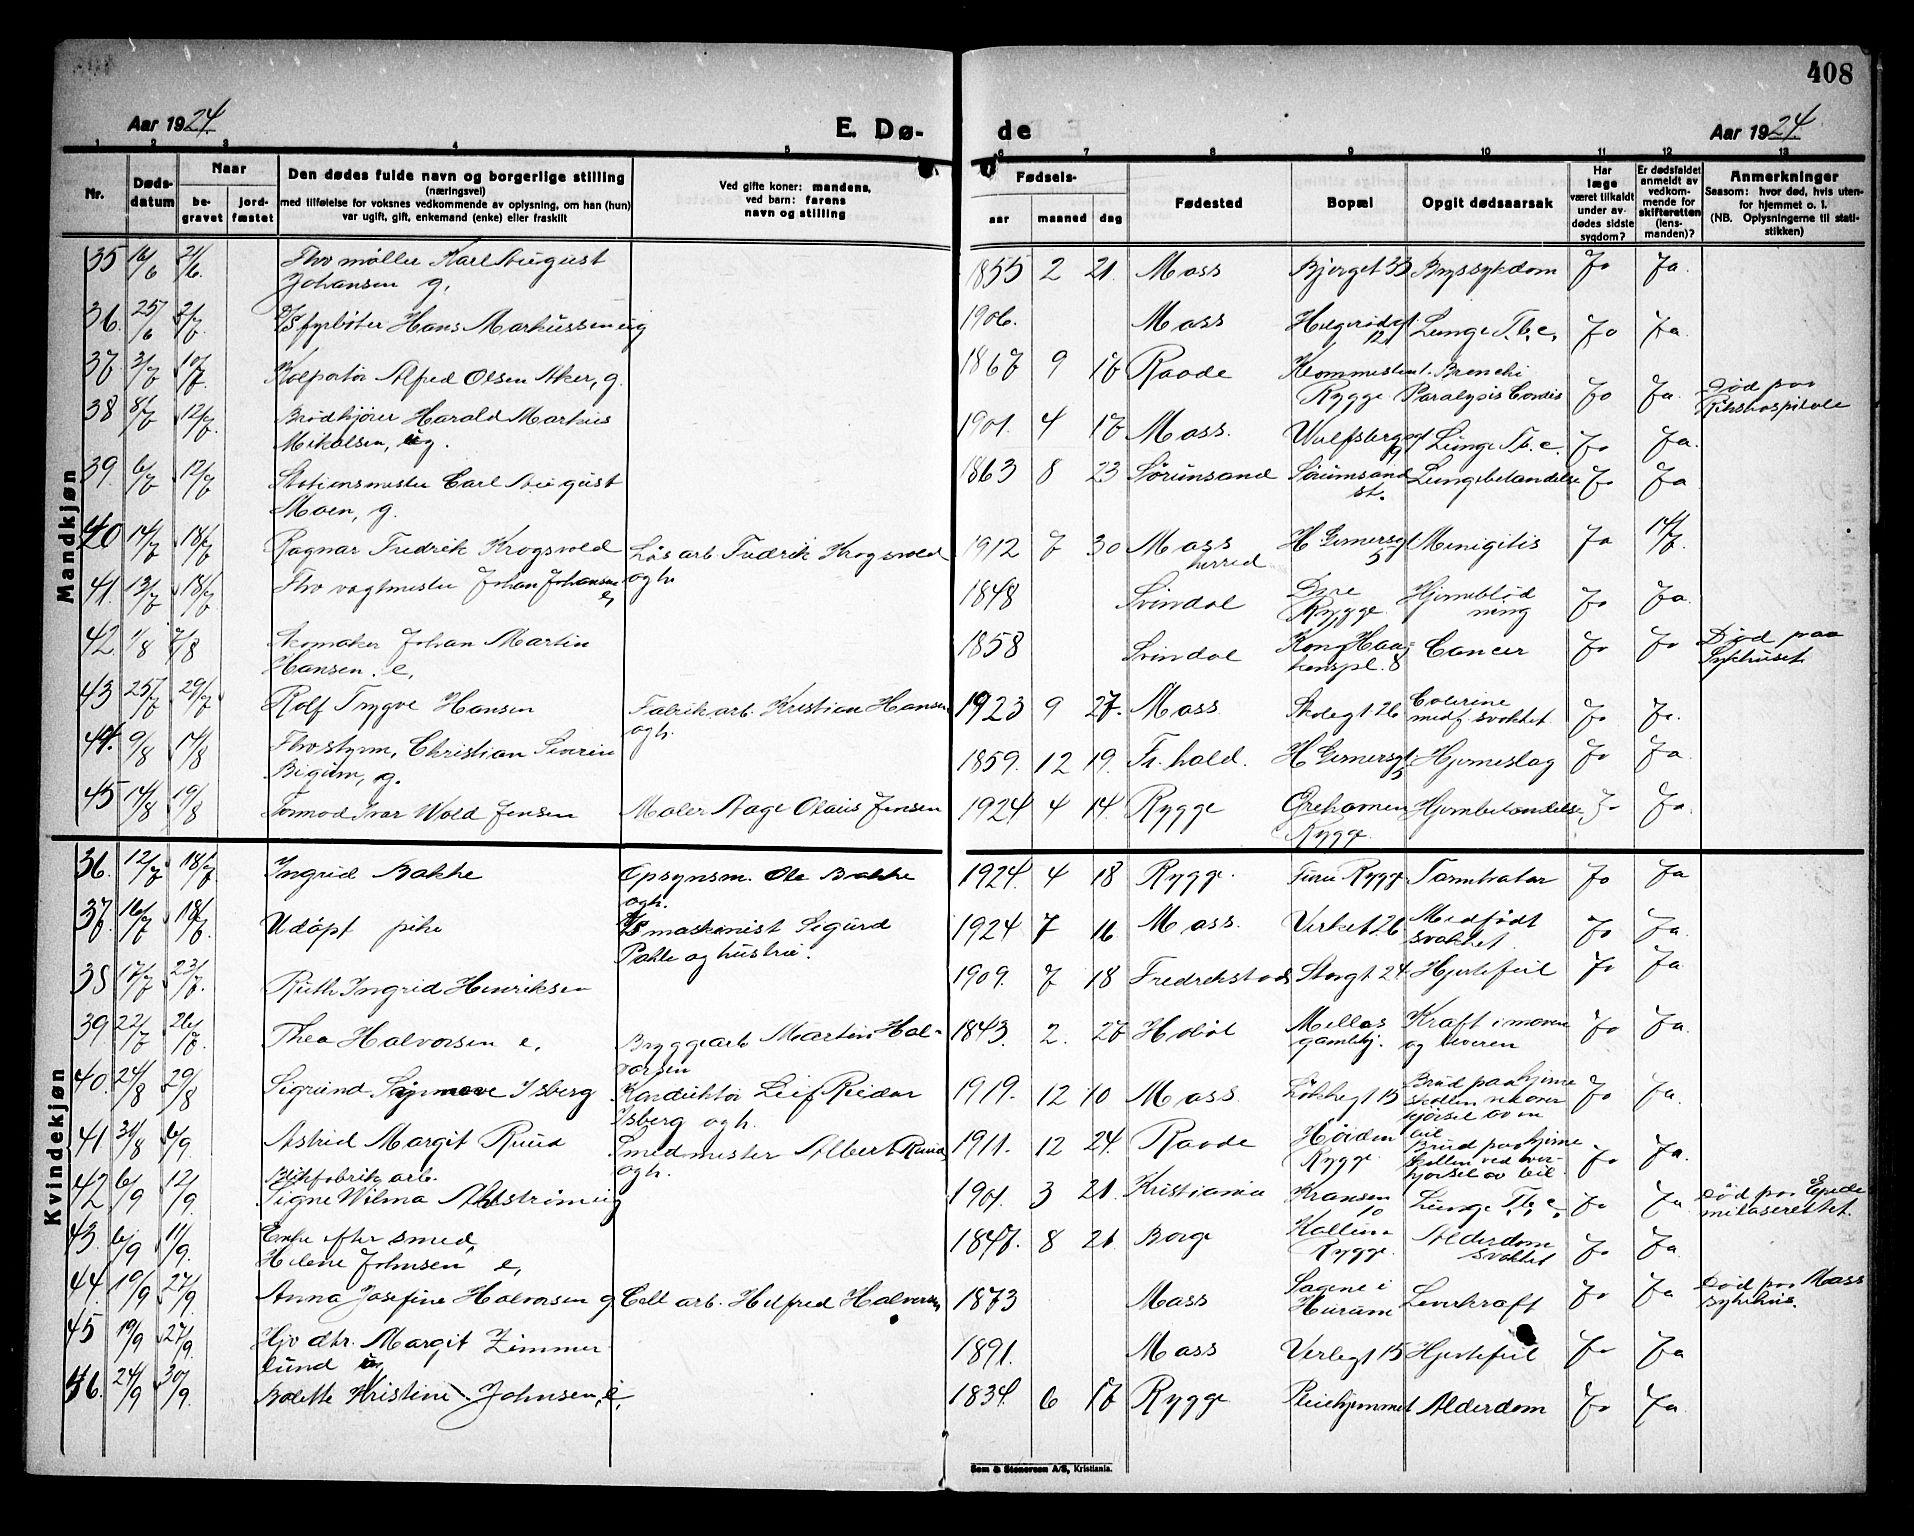 408
Aar 1924.
E. Dø-
de
Aar 1924.
1 2 3 4 5 6 7 8 9 10 11 12 13
Nr.
Døds-
datum
Naar
be-
gravet
jord-
fæstet
Den dødes fulde navn og borgerlige stilling
(næringsvei)
med tilføielse for voksnes vedkommende av oplysning, om han (hun)
var ugift, gift, enkemand (enke) eller fraskilt
Ved gifte koner: mandens,
ved barn: farens
navn og stilling
Fødsels-
aar
maaned
dag
Fødested
Bopæl
Opgit dødsaarsak
Har
læge
været tilkaldt
under av-
dødes sidste
sygdom?
Er dødsfaldet
anmeldt av
vedkom-
mende for
skifteretten
(lens-
manden)?
Anmerkninger
Saasom: hvor død, hvis uten-
for hjemmet o. l.
(NB. Oplysningerne til stati-
stikken)
Mandkjøn
35 16/6 21/6 Karl August
Johansen g. 1855 2 21. Moss Bjerget 33 Brystsykdom Ja Ja.
36. 25/6 2/7 fyrbøter Hans Markussen ug 1906. Moss 12 Lunge Tb.c. Ja Ja.
37 3/7 10/7 Kolportør Alfred Olsen Aker, g. 1867 9 17 Raade Rygge Paralysis Cordis Ja Ja. Død paa
Rikshospitale
38 8/7 12/7 Brødkjører Harald Markus
Mikalsen, ug. 1901. 4 17 Moss. Wulfsbergsgt Lunge Tb.c. Ja Ja.
39. 6/7 12/7 Stationsmester Carl August
Moen, g. 1863 8 23 Sørumsand Sørumsand
st. Lungebetændelse Ja Ja
40 14/7 18/7 Ragnar Fredrik Krogsvold Løsarb Fredrik Krogsvold
ogh. 1912 7 30 Moss
herred H Gernersgt
5 Menigitis Ja 14/7.
41. 13/7 18/7 Fhv vagtmester Johan Johansen
e, 1848 Svindal Dyre
Rygge Hjerneblød
ning Ja Ja.
42. 1/8 7/8 Skomaker Johan Martin
Hansen. e, 1858 Svindal Kong Haa-
konspl. 8 Cancer Ja Ja Død paa
Sykhuset.
43 25/7 29/7 Rolf Trygve Hansen Fabrikarb. Kristian Hansen
ogh. 1923 9 27. Moss Skolegt 26 Colerine
medf svakhet Ja Ja.
44. 9/8 14/8 Fhv styrm, Christian Severin
Bigum, g. 1859. 12 19. Fr.hald. H Gernersgt
5 Hjerneslag Ja Ja
45 14/8 19/8 Tormod Ivar Wold Jensen Maler Aage Olaus Jensen 1924 4 14. Rygge
Rygge. Hjernbetændelse Ja Ja
Kvindekjøn
36. 12/7 18/7 Ingrid Bakke Opsynsm. Ole Bakke
ogh. 1924. 4 18 Rygge. Furu Rygge Tarmkatar Ja Ja
37. 16/7 18/7. Udøpt pike maskinist Sigurd
og hustru. 1924 7 16 Moss. Verket 26 Medfødt
svakhet. Ja Ja.
38 17/7 23/7. Ruth Ingrid Henriksen 1909. 7 18 Fredrikstad Storgt 24 Hjertefeil Ja Ja
39 22/7 26/7. Thea Halvorsen e, Bryggearb Martin Hal-
vorsen 1843. 2. 27 Hobøl Mellos
gamlehj. Kræft i maven
og leveren Ja Ja.
40. 24/8 29/8 Sigrund Synnøve Isberg Konduktør Leif Reidar
Isberg ogh. 1919. 12 10 Moss Løkkegt 15 Brud paa hjerne
skallen ved over
kjørsel av en
bil Ja Ja.
41 31/8 6/9 Astrid Margit Ruud Smedmester Albert Ruud,
ogh. 1911. 12 24. Raade Høiden
Rygge Brud paa hjerne
skallen ved over-
kjørsel av bil Ja Ja.
42 6/9 12/9 Blikfabrik arb.
Signe Wilma Ahlstrøm ug 1901. 3 21. Kristiania Kransen
10 Lunge Tb.c. Ja Ja Død paa Epide
milaserettet.
43. 6/9 11/9. Enke efter smed,
Helene Johnsen e, 1847. 8 21. Borge Kallum
Rygge. Alderdom
svakhet Ja Ja.
44. 19/9 27/9. Anna Josefine Halvorsen g. Cell arb. Helfred Halvorsen 1873 Moss Leverkræft Ja Ja Død paa Moss
sykehus.
45 19/9 27/9. Hjv dtr. Margit Zimmer
lund u, 1891. Moss Verlegt 15 Hjertefeil Ja Ja
46. 24/9 30/9. Bolette Kristine Johnsen, e, 1834. 6 17 Rygge Pleiehjemmet Alderdom Ja Ja.
Sem & Stenersen A/S, Kristiania.